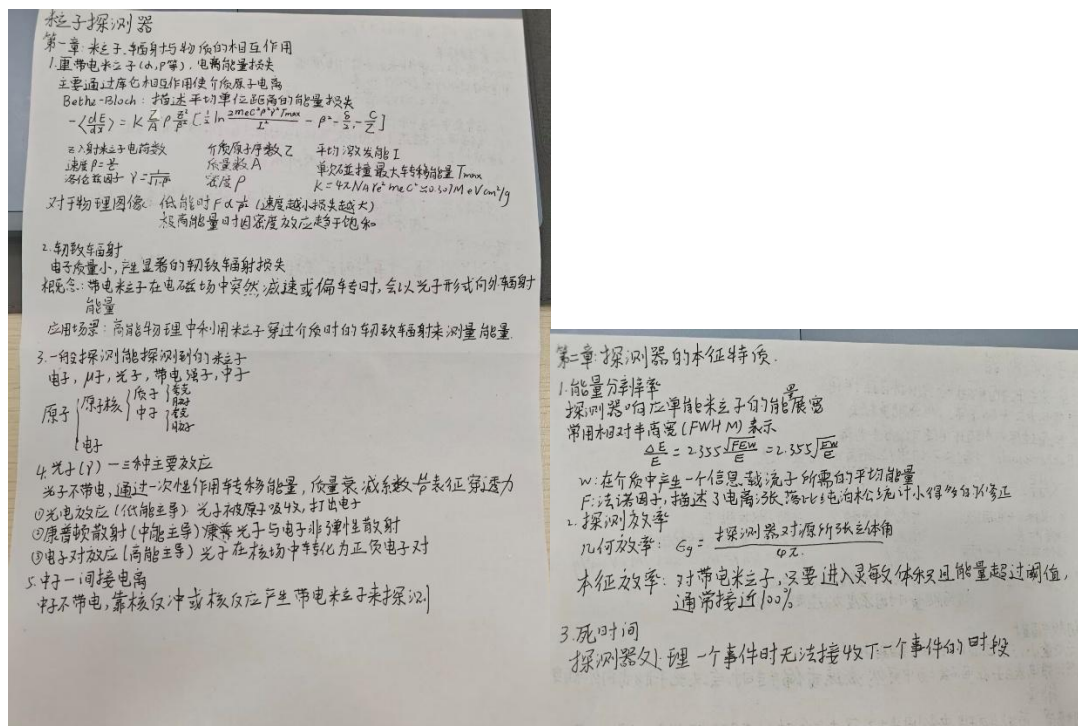 粒子探测器
第一章:粒子、辐射与物质的相互作用
1.重带电粒子(α,p等),电离能量损失
主要通过库仑相互作用使介质原子电离
Bethe-Bloch:描述平均单位距离的能量损失
-<dE/dx> = K Z/A ρ z²/β² [½ ln 2meC²β²γ²Tmax/I² - β² - δ/2 - C/Z]
z入射粒子电荷数 介质原子序数Z 平均激发能I
速度β=v/c 质量数A 单次碰撞最大转移能量Tmax
洛伦兹因子γ=1/√1-β² 密度ρ K=4πNAre²meC²≈0.307MeVcm²/g
对于物理图像:低能时F∝1/β²(速度越小损失越大)
极高能量时因密度效应趋于饱和
2.轫致辐射
电子质量小,产生显著的轫致辐射损失
概念:带电粒子在电磁场中突然减速或偏转时,会以光子形式向外辐射
能量
应用场景:高能物理中利用粒子穿过介质时的轫致辐射来测量能量.
3.一般探测能探测到的粒子
电子,μ子,光子,带电强子,中子
原子 { 原子核 { 质子 { 夸克 胶子
中子 { 夸克 胶子
电子
4.光子(γ)—三种主要效应
光子不带电,通过一次性作用转移能量,质量衰减系数μ/ρ表征穿透力
①光电效应(低能主导)光子被原子吸收,打出电子
②康普顿散射(中能主导)光子与电子非弹性散射
③电子对效应(高能主导)光子在核场中转化为正负电子对
5.中子—间接电离
中子不带电,靠核反冲或核反应产生带电粒子来探测
第二章:探测器的本征特质.
1.能量分辨率
探测器响应单能粒子的能量展宽
常用相对半高宽(FWHM)表示
ΔE/E = 2.355 √FEW/E = 2.355 √FW/E
W:在介质中产生一个信息载流子所需的平均能量
F:法诺因子,描述了电离涨落比纯泊松统计小得多的修正
2.探测效率
几何效率: εg = 探测器对源所张立体角/4π
本征效率:对带电粒子,只要进入灵敏体积且能量超过阈值,
通常接近100%
3.死时间
探测器处理一个事件时无法接收下一个事件的时段